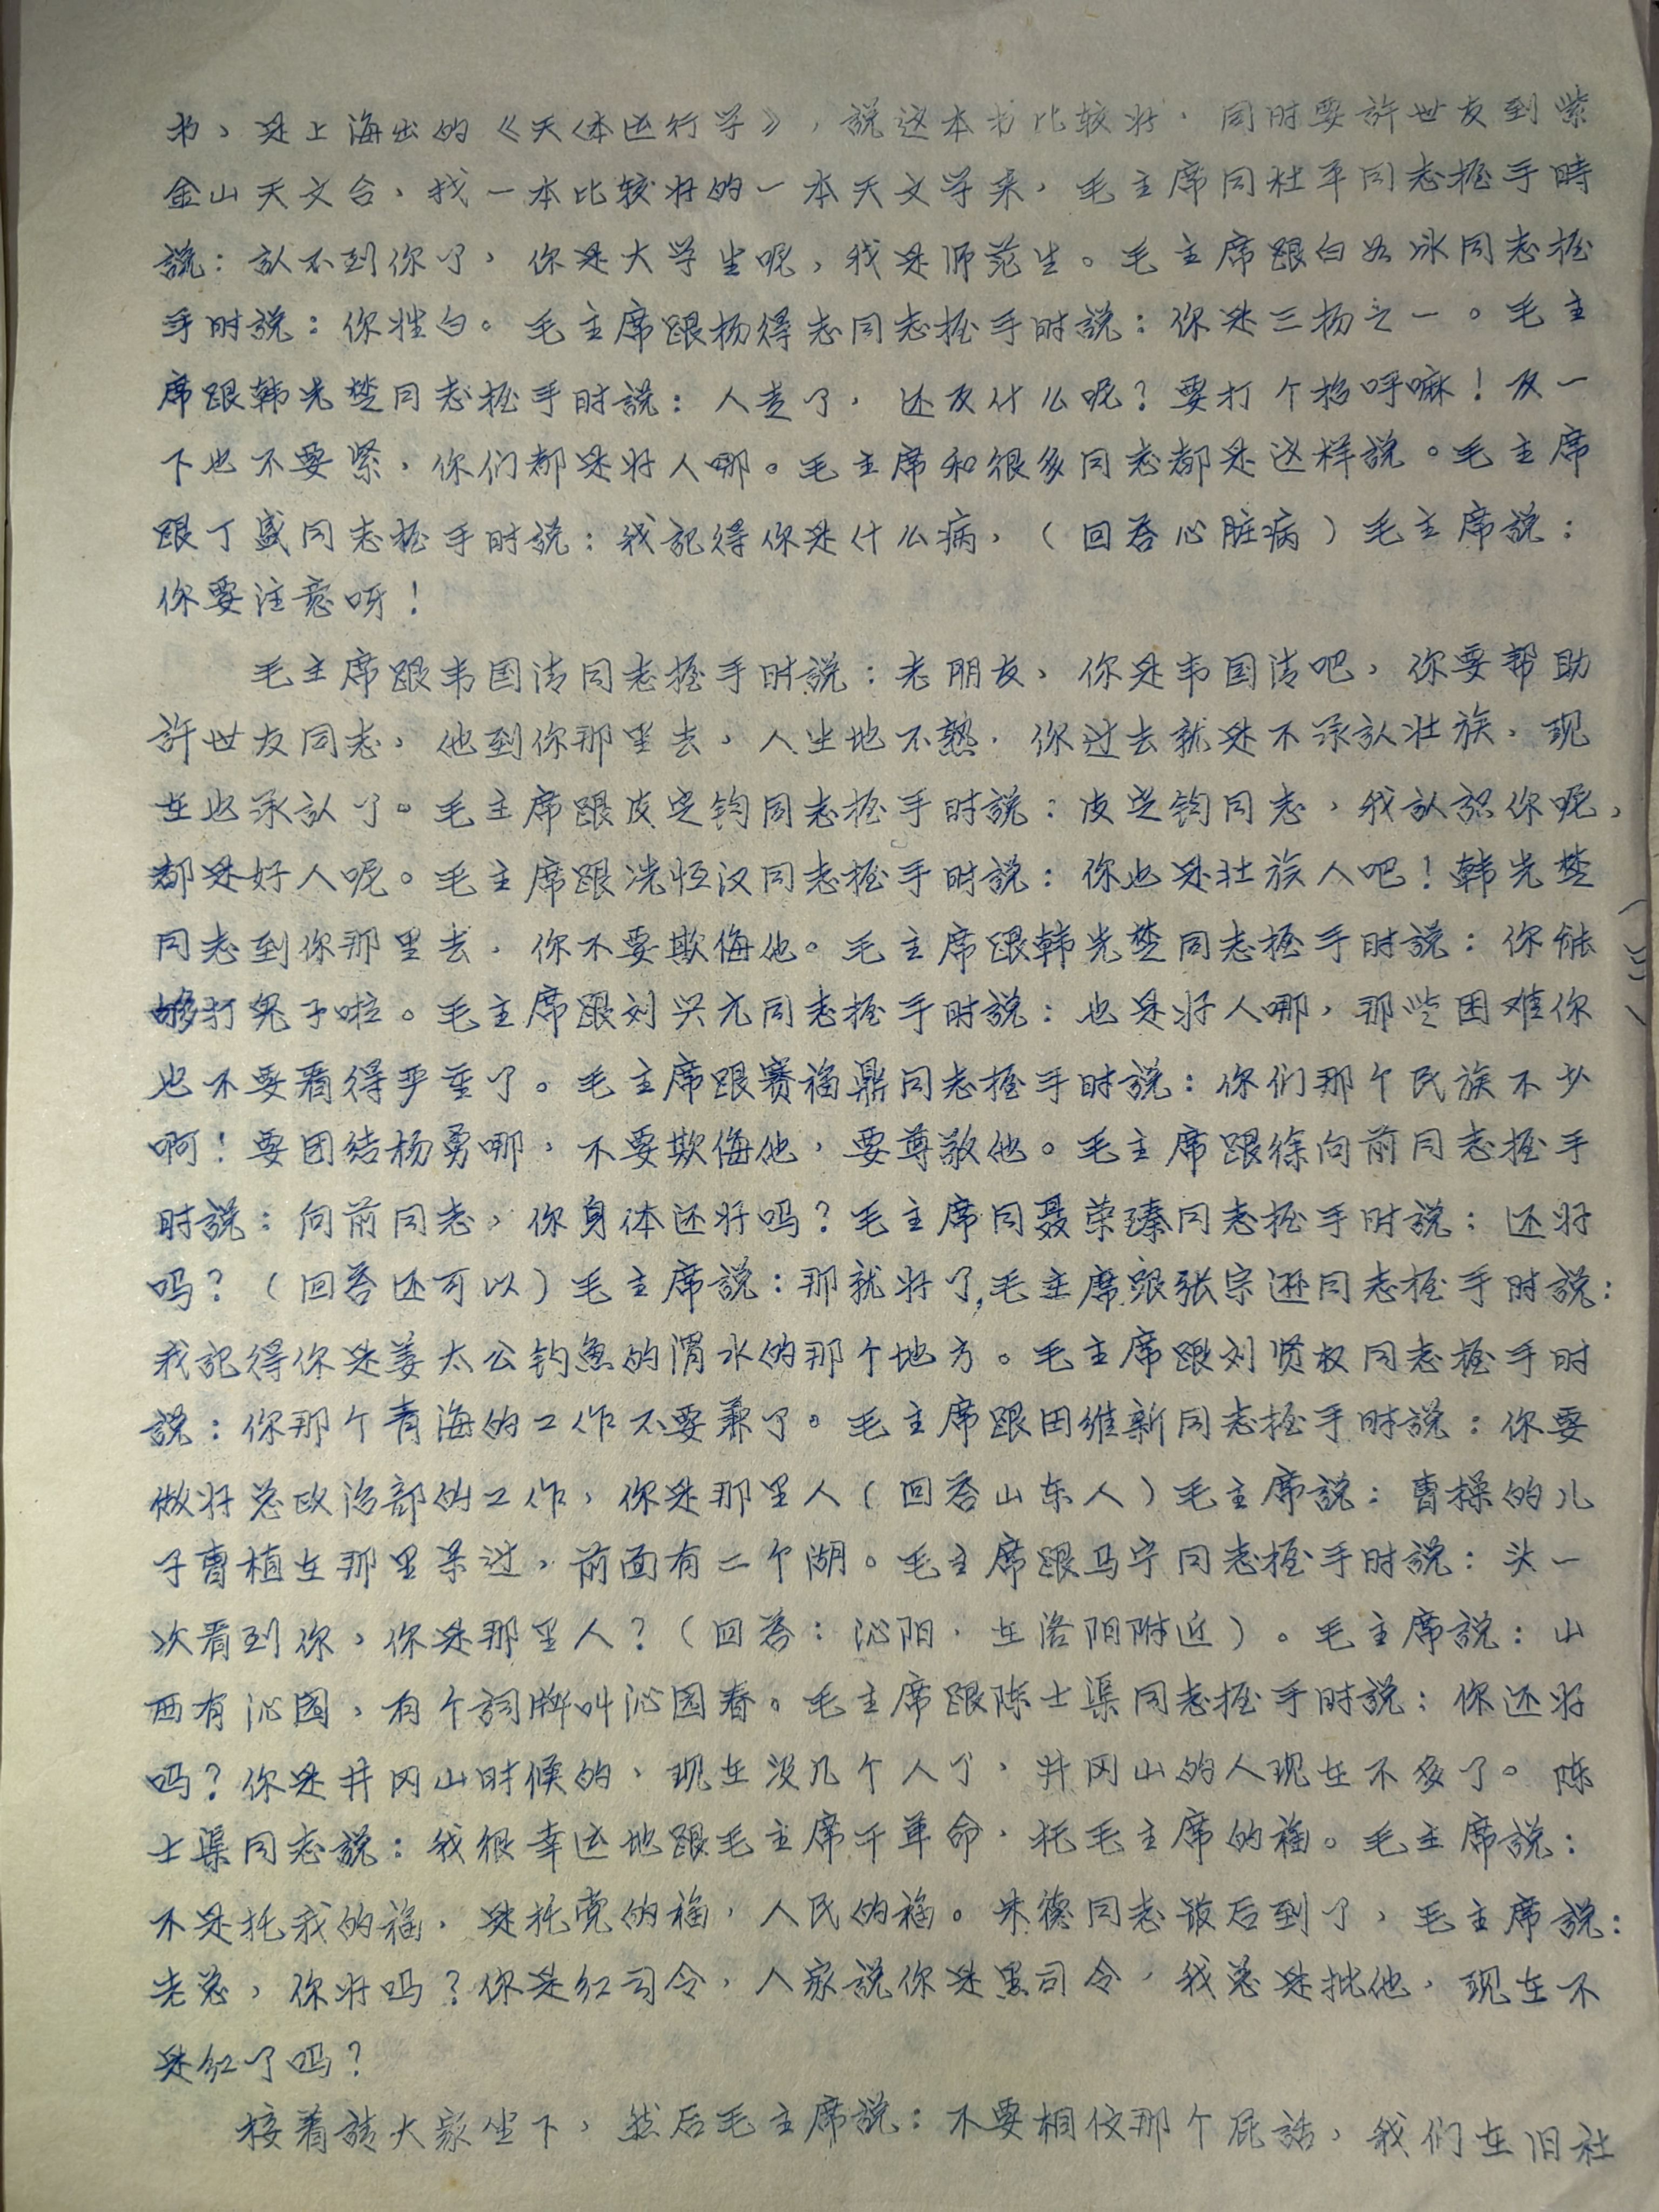 书，是上海出的《天体运行学》，説这本书比较好，同时要許世友到紫
金山天文台，找一本比较好的一本天文学来，毛主席同杜平同志握手時
説：認不到你了，你是大学生呢，我是师范生。毛主席跟白如冰同志握
手时説：你姓白。毛主席跟杨得志同志握手时説：你是三杨之一。毛主
席跟韩光楚同志握手时説：人走了，还反什么呢？要打个招呼嘛！反一
下也不要紧，你们都是好人哪。毛主席和很多同志都是这样説。毛主席
跟丁盛同志握手时説：我記得你是什么病，（回答心脏病）毛主席説：
你要注意呀！
毛主席跟韦国清同志握手时説：老朋友，你是韦国清吧，你要帮助
許世友同志，他到你那里去，人生地不熟，你过去就是不承认壮族，现
在也承认了。毛主席跟皮定钧同志握手时説：皮定钧同志，我认識你呢，
都是好人呢。毛主席跟冼恒汉同志握手时説：你也是壮族人吧！韩光楚
同志到你那里去，你不要欺侮他。毛主席跟韩光楚同志握手时説：你能
够打兔子啦。毛主席跟刘兴元同志握手时説：也是好人哪，那些困难你
也不要看得严重了。毛主席跟赛福鼎同志握手时説：你们那个民族不少
啊！要团结杨勇哪，不要欺侮他，要尊敬他。毛主席跟徐向前同志握手
时説：向前同志，你身体还好吗？毛主席同聂荣臻同志握手时説：还好
吗？（回答还可以）毛主席説：那就好了，毛主席跟张宗逊同志握手时説：
我記得你是姜太公钓魚的渭水的那个地方。毛主席跟刘贤权同志握手时
説：你那个青海的工作不要兼了。毛主席跟田维新同志握手时説：你要
做好总政治部的工作，你是那里人（回答山东人）毛主席説：曹操的儿
子曹植在那里呆过，前面有二个湖。毛主席跟马宁同志握手时説：头一
次看到你，你是那里人？（回答：沁阳，在洛阳附近）。毛主席説：山
西有沁园，有个詞牌叫沁园春。毛主席跟陈士渠同志握手时説：你还好
吗？你是井冈山时候的，现在没几个人了，井冈山的人现在不多了。陈
士渠同志説：我很幸运地跟毛主席干革命，托毛主席的福。毛主席説：
不是托我的福，是托党的福，人民的福。朱德同志最后到了，毛主席説：
老总，你好吗？你是红司令，人家説你是黑司令，我总是批他，现在不
是红了吗？
接着請大家坐下，然后毛主席説：不要相信那个屁話，我们在旧社